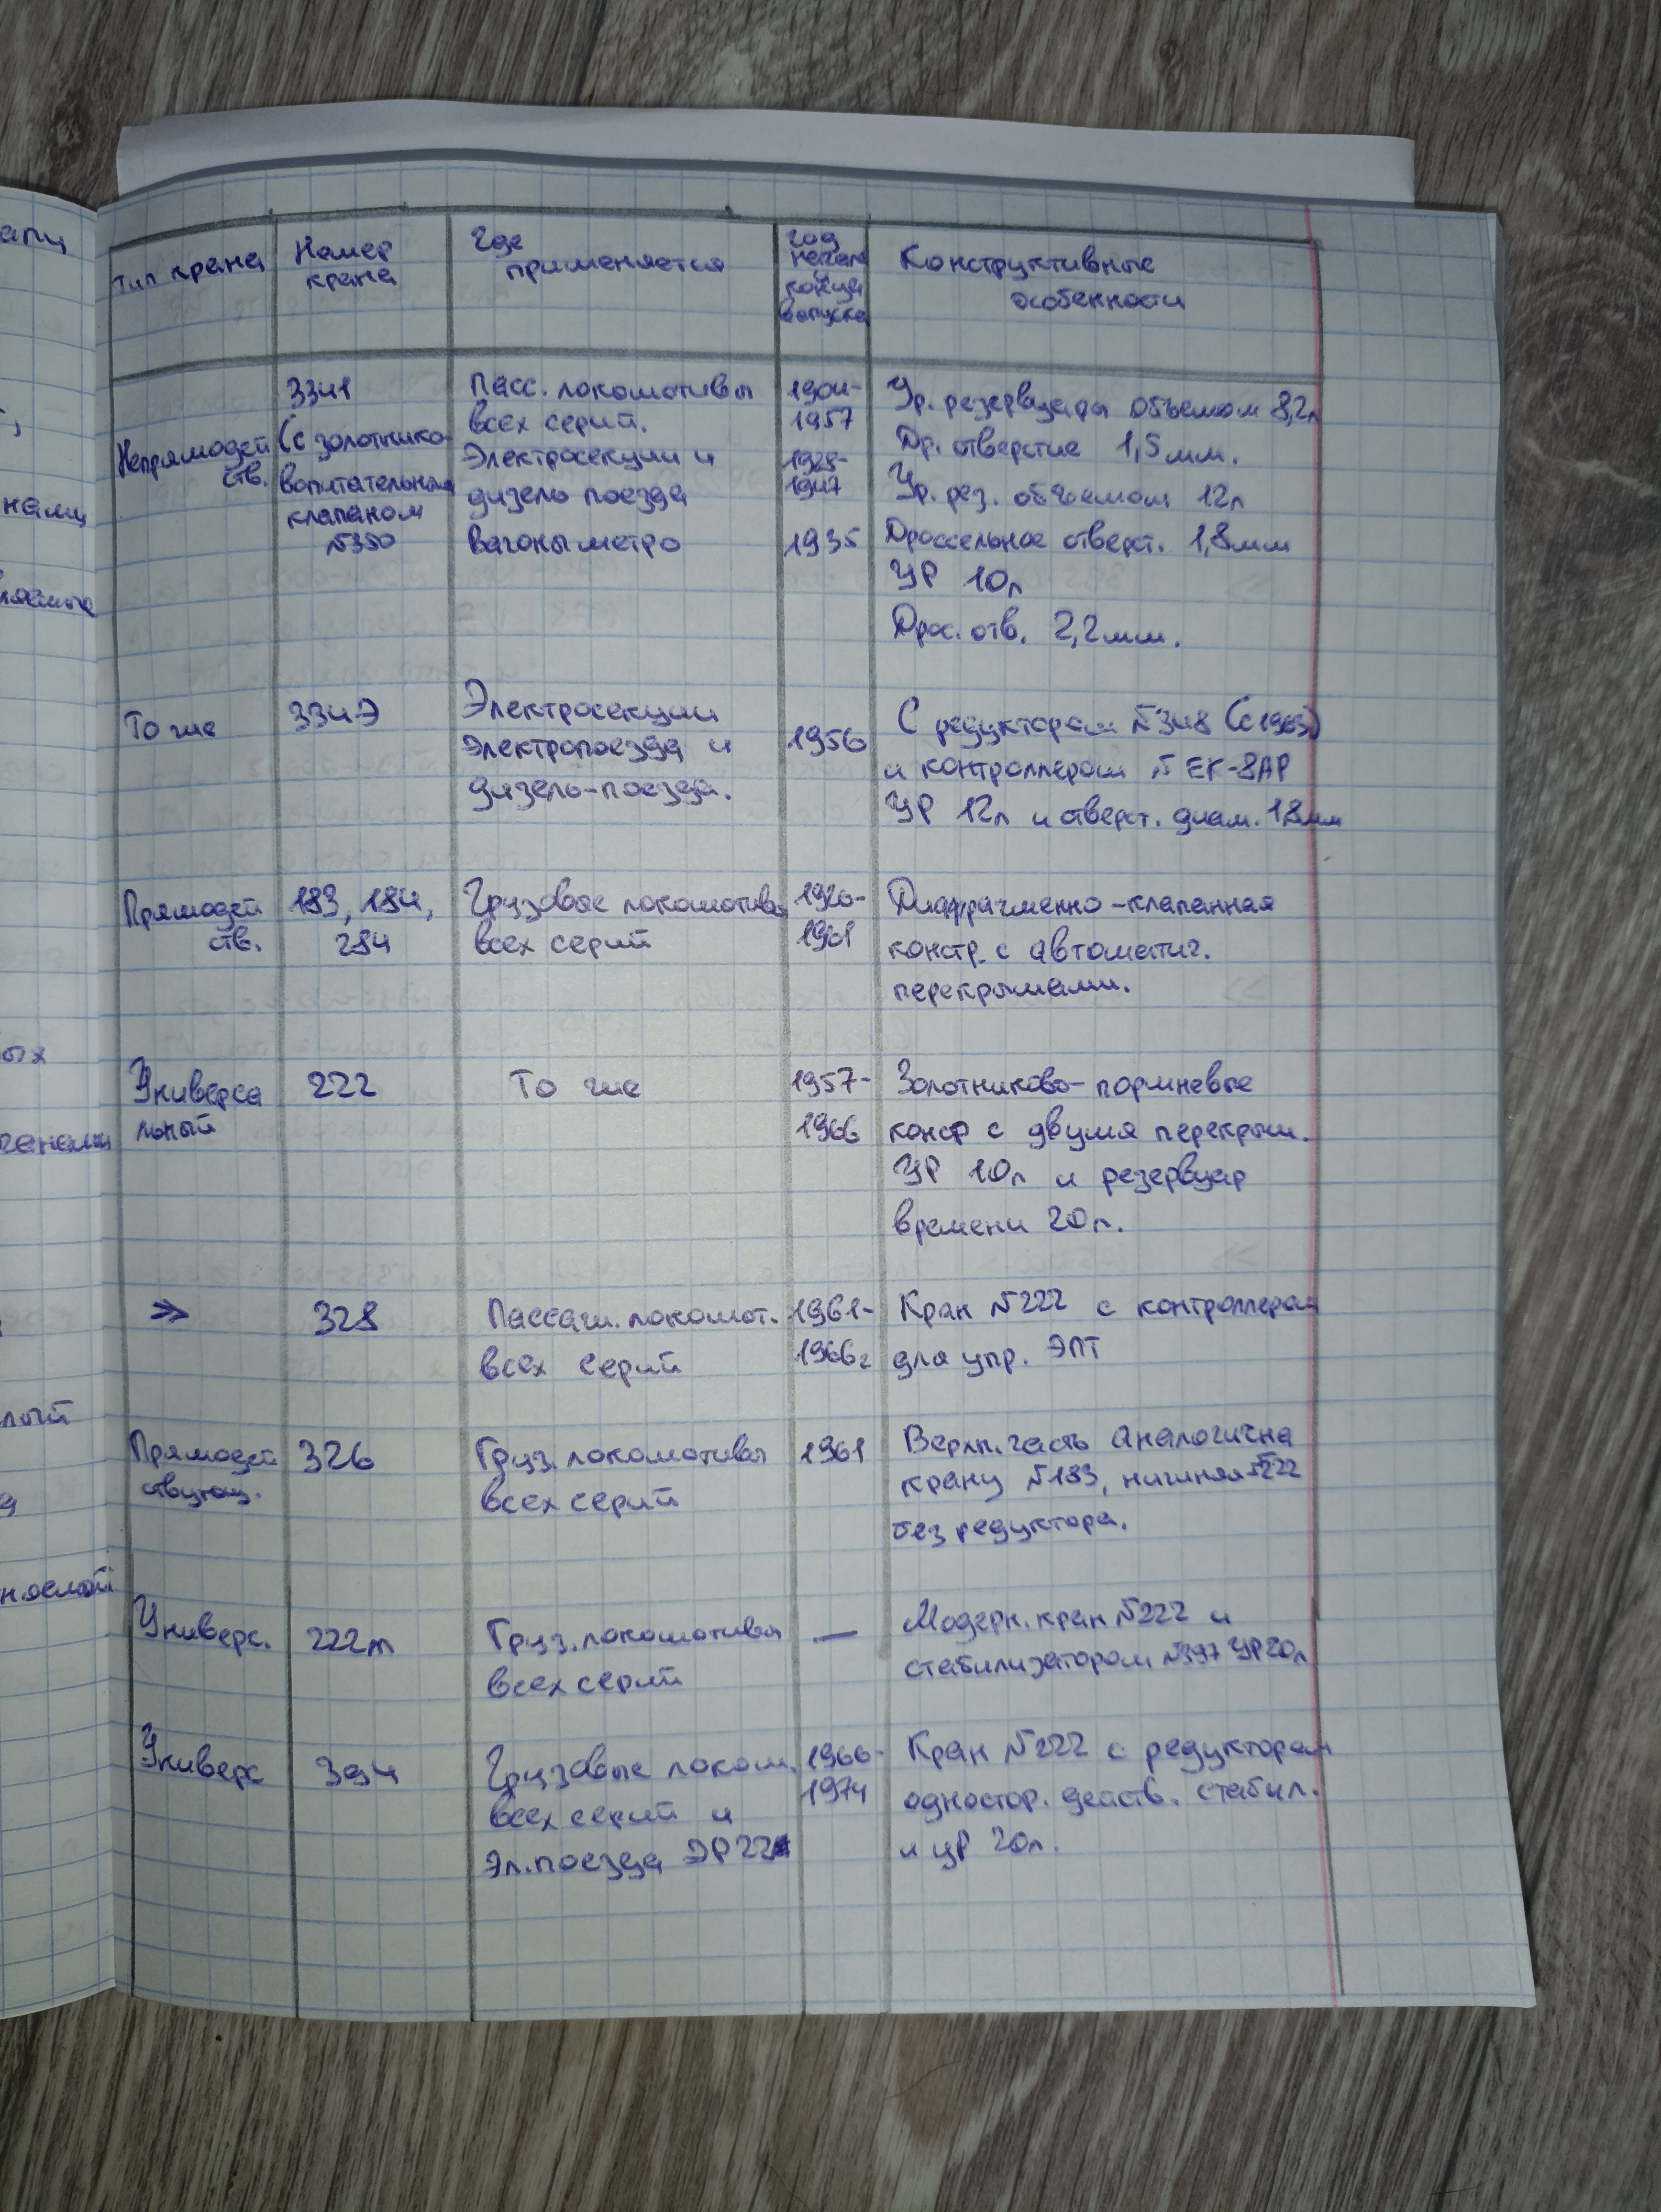 апи
нами
ляемые
ых
лый
Тип крана
Номер
крана
Где
применяется
год
начала
и
конца
выпуска
Конструктивные
особенности
Непрямодей
ств.
3341
(с золотнико-
вопитательным
клапаном
№350
Пасс. локомотивы
всех серий.
Электросекции и
дизель поезда
Вагоны метро
1904-
1957
1928-
1947
1935
Ур. резервуары объемом 8,2л
Др. отверстие 1,5мм.
Ур. рез. объемом 12л
Дроссельное отверст. 1,8мм
УР 10л
Дрос. отв. 2,2мм.
То же
334Э
Электросекции
электропоезда и
дизель-поезда.
1956
С редуктором №348 (с 1963)
и контроллером № ЕК-8АР
УР 12л и отверст. диам. 1,8мм
Прямодей
ств.
183, 184,
284
Грузовые локомотивы
всех серий
1920-
1961
Диафрагменно-клапанная
констр. с автоматич.
перекрышами.
Универса
льный
222
То же
1957-
1966
Золотниково-поршневые
констр с двумя перекрыш.
УР 10л и резервуар
времени 20л.
>>
328
Пассаж. локомот.
всех серий
1961-
1966г
Кран №222 с контроллером
для упр. ЭПТ
Прямодей
ствующ.
326
Груз. локомотивы
всех серий
1961
Верхн. часть аналогична
крану №183, нижняя №222
без редуктора.
Универс.
222м
Груз. локомотивы
всех серий
—
Модерн. кран №222 и
стабилизатором №397 УР20л
Универс
394
Грузовые локом.
всех серий и
эл.поезда ЭР22
1966-
1974
Кран №222 с редуктором
одностор. действ. стабил.
и УР 20л.